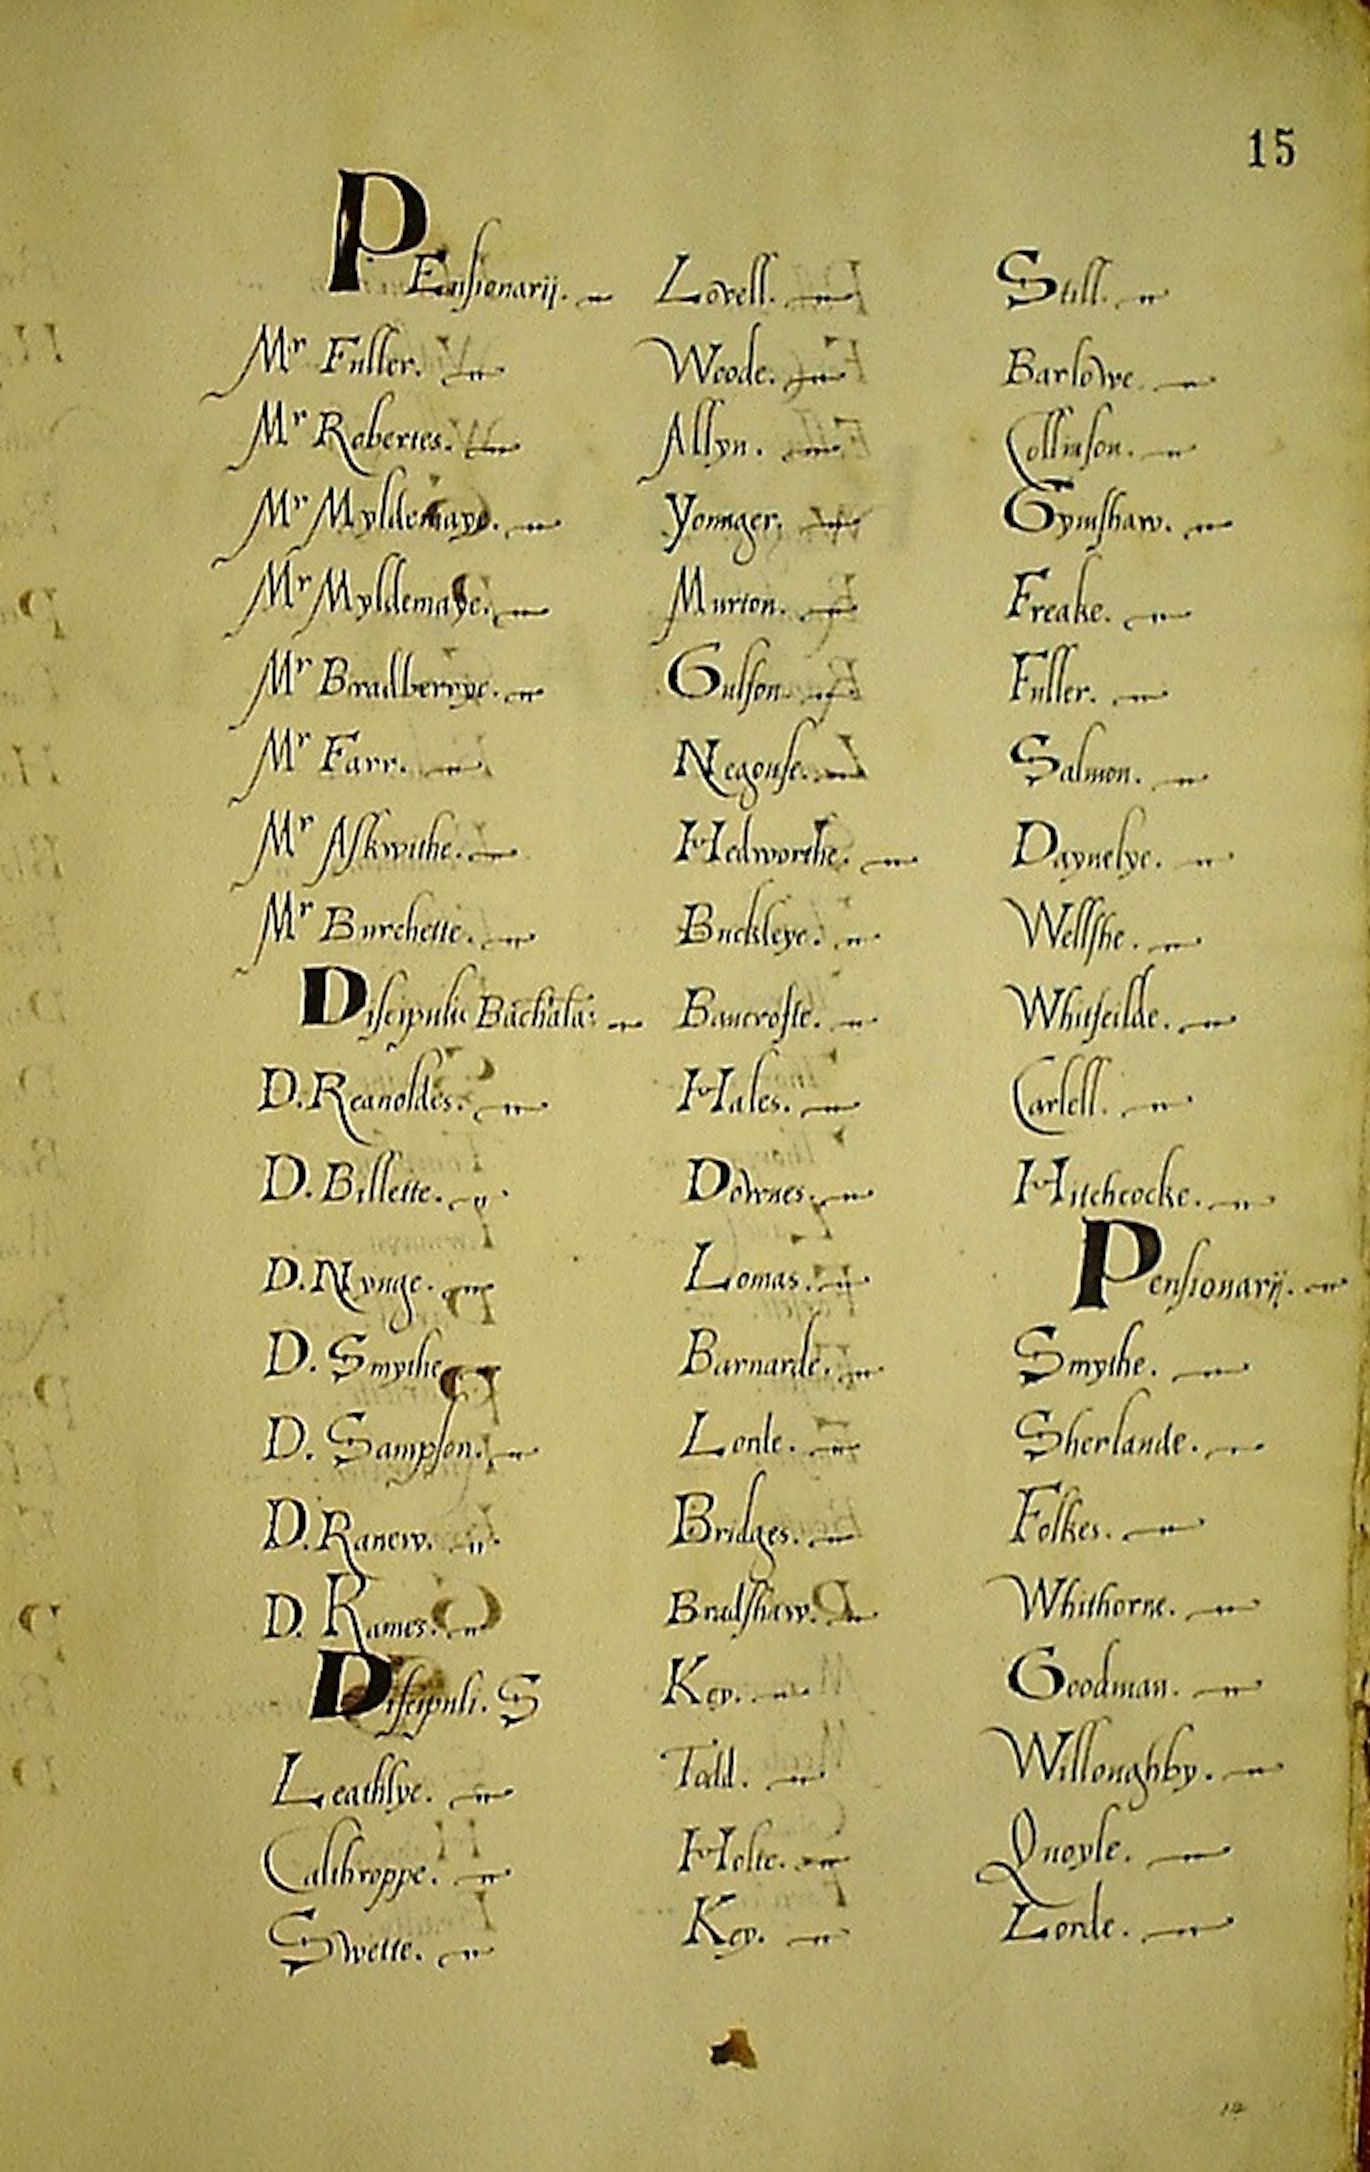 15
PEnsionarij.
Mr Fuller.
Mr Robertes.
Mr Myldemaye.
Mr Myldemaye.
Mr Bradberrye.
Mr Farr.
Mr Askwithe.
Mr Burchette.
Discipuli Bachala:
D. Reanoldes.
D. Billette.
D. Nynge.
D. Smythe
D. Sampson.
D. Ranew.
D. Rames.
Discipuli. S
Leathlye.
Calthroppe.
Swette.
Lovell.
Woode.
Allyn.
Younger.
Murton.
Gulson.
Negouse.
Hedworthe.
Buckleye.
Bancrofte.
Hales.
Downes.
Lomas.
Barnarde.
Lorde.
Bridges.
Bradshaw.
Key.
Todd.
Holte.
Key.
Still.
Barlowe.
Collinson.
Gymshaw.
Freake.
Fuller.
Salmon.
Daynelye.
Wellshe.
Whitfeilde.
Carlell.
Hitchcocke.
Pensionarij.
Smythe.
Sherlande.
Folkes.
Whithorne.
Goodman.
Willoughby.
Quoyle.
Lorde.